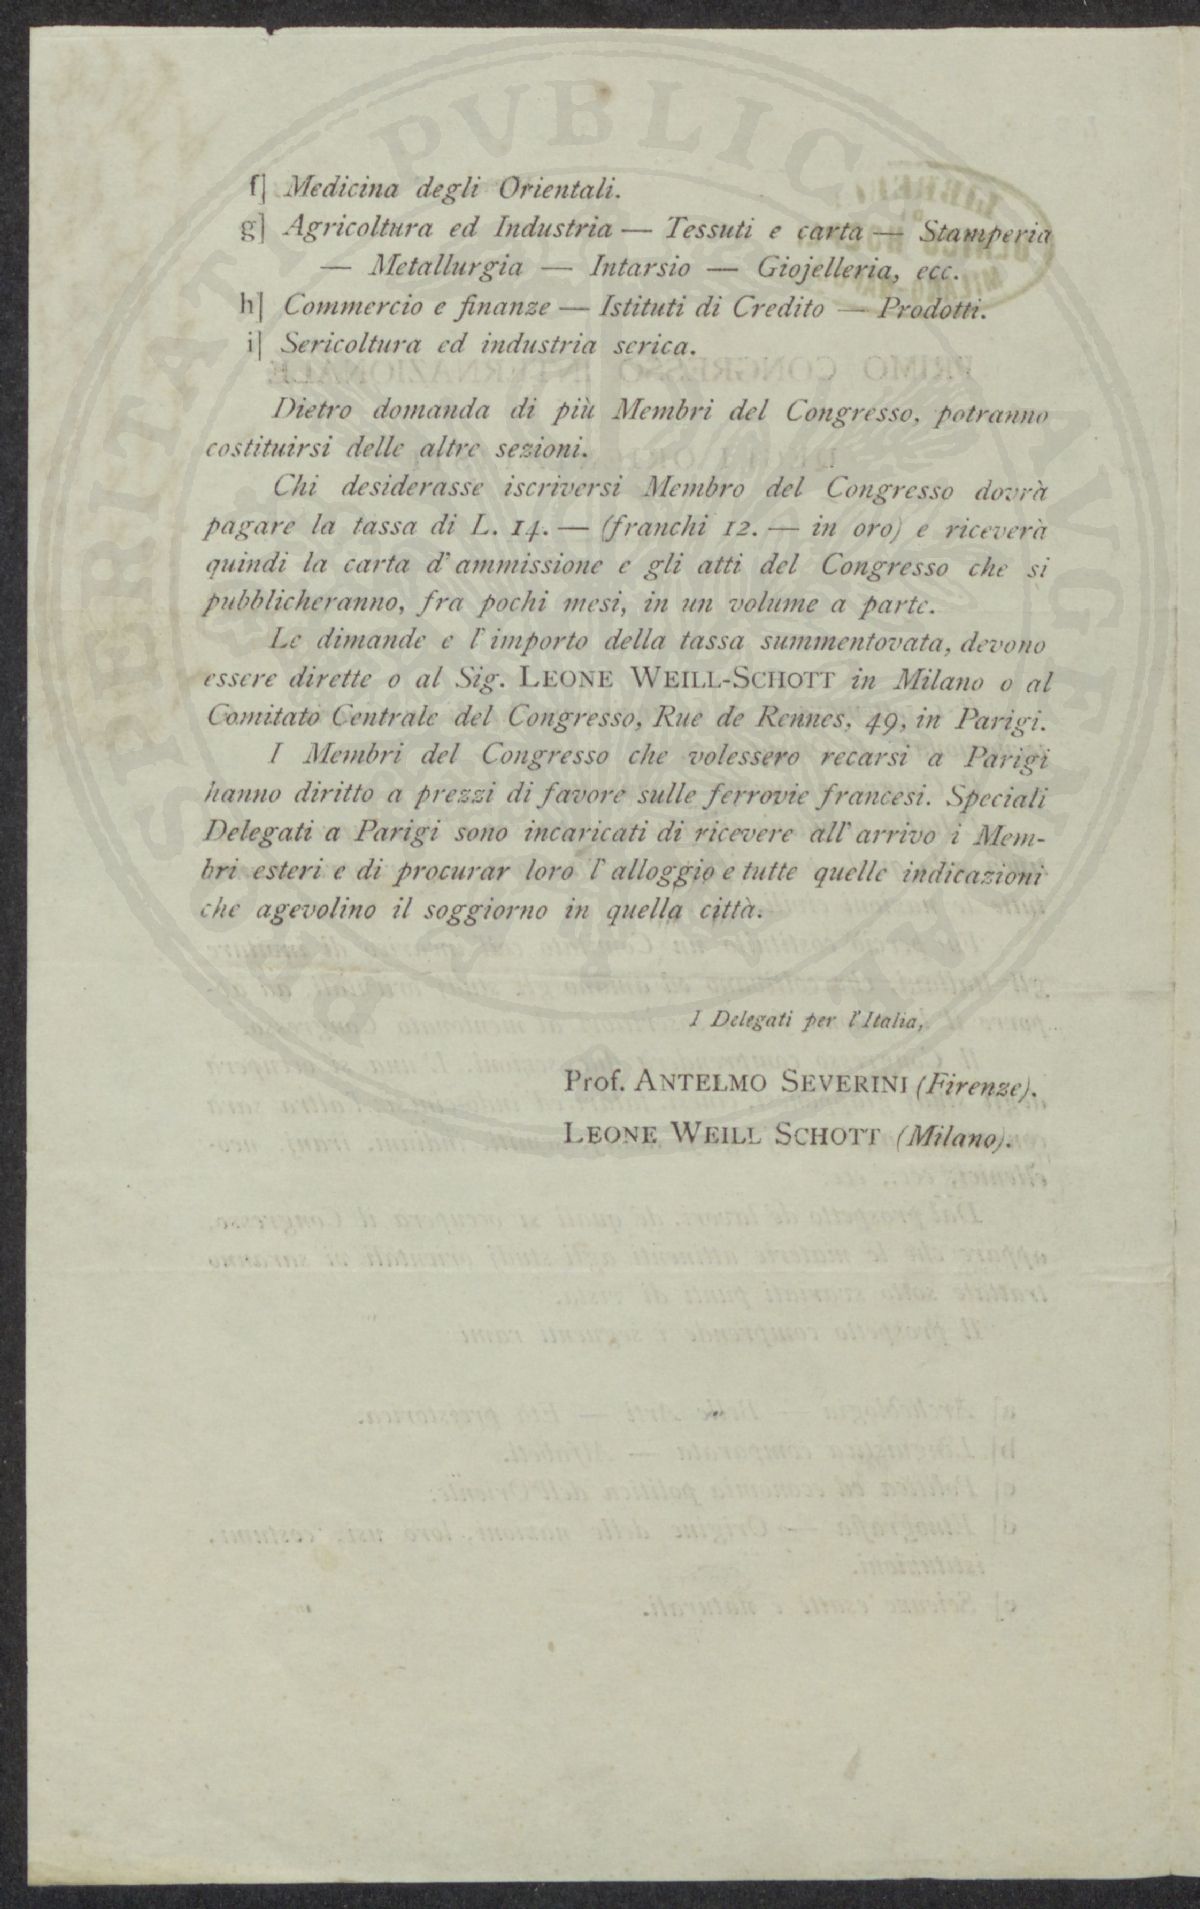 f] Medicina degli Orientali.
g] Agricoltura ed Industria — Tessuti e carta — Stamperia
— Metallurgia — Intarsio — Giojelleria, ecc.
h] Commercio e finanze — Istituti di Credito — Prodotti.
i] Sericoltura ed industria serica.
Dietro domanda di più Membri del Congresso, potranno
costituirsi delle altre sezioni.
Chi desiderasse iscriversi Membro del Congresso dovrà
pagare la tassa di L. 14. — (franchi 12. — in oro) e riceverà
quindi la carta d'ammissione e gli atti del Congresso che si
pubblicheranno, fra pochi mesi, in un volume a parte.
Le dimande e l'importo della tassa summentovata, devono
essere dirette o al Sig. LEONE WEILL-SCHOTT in Milano o al
Comitato Centrale del Congresso, Rue de Rennes, 49, in Parigi.
I Membri del Congresso che volessero recarsi a Parigi
hanno diritto a prezzi di favore sulle ferrovie francesi. Speciali
Delegati a Parigi sono incaricati di ricevere all'arrivo i Mem-
bri esteri e di procurar loro l'alloggio e tutte quelle indicazioni
che agevolino il soggiorno in quella città.
I Delegati per l'Italia,
Prof. ANTELMO SEVERINI (Firenze).
LEONE WEILL SCHOTT (Milano).